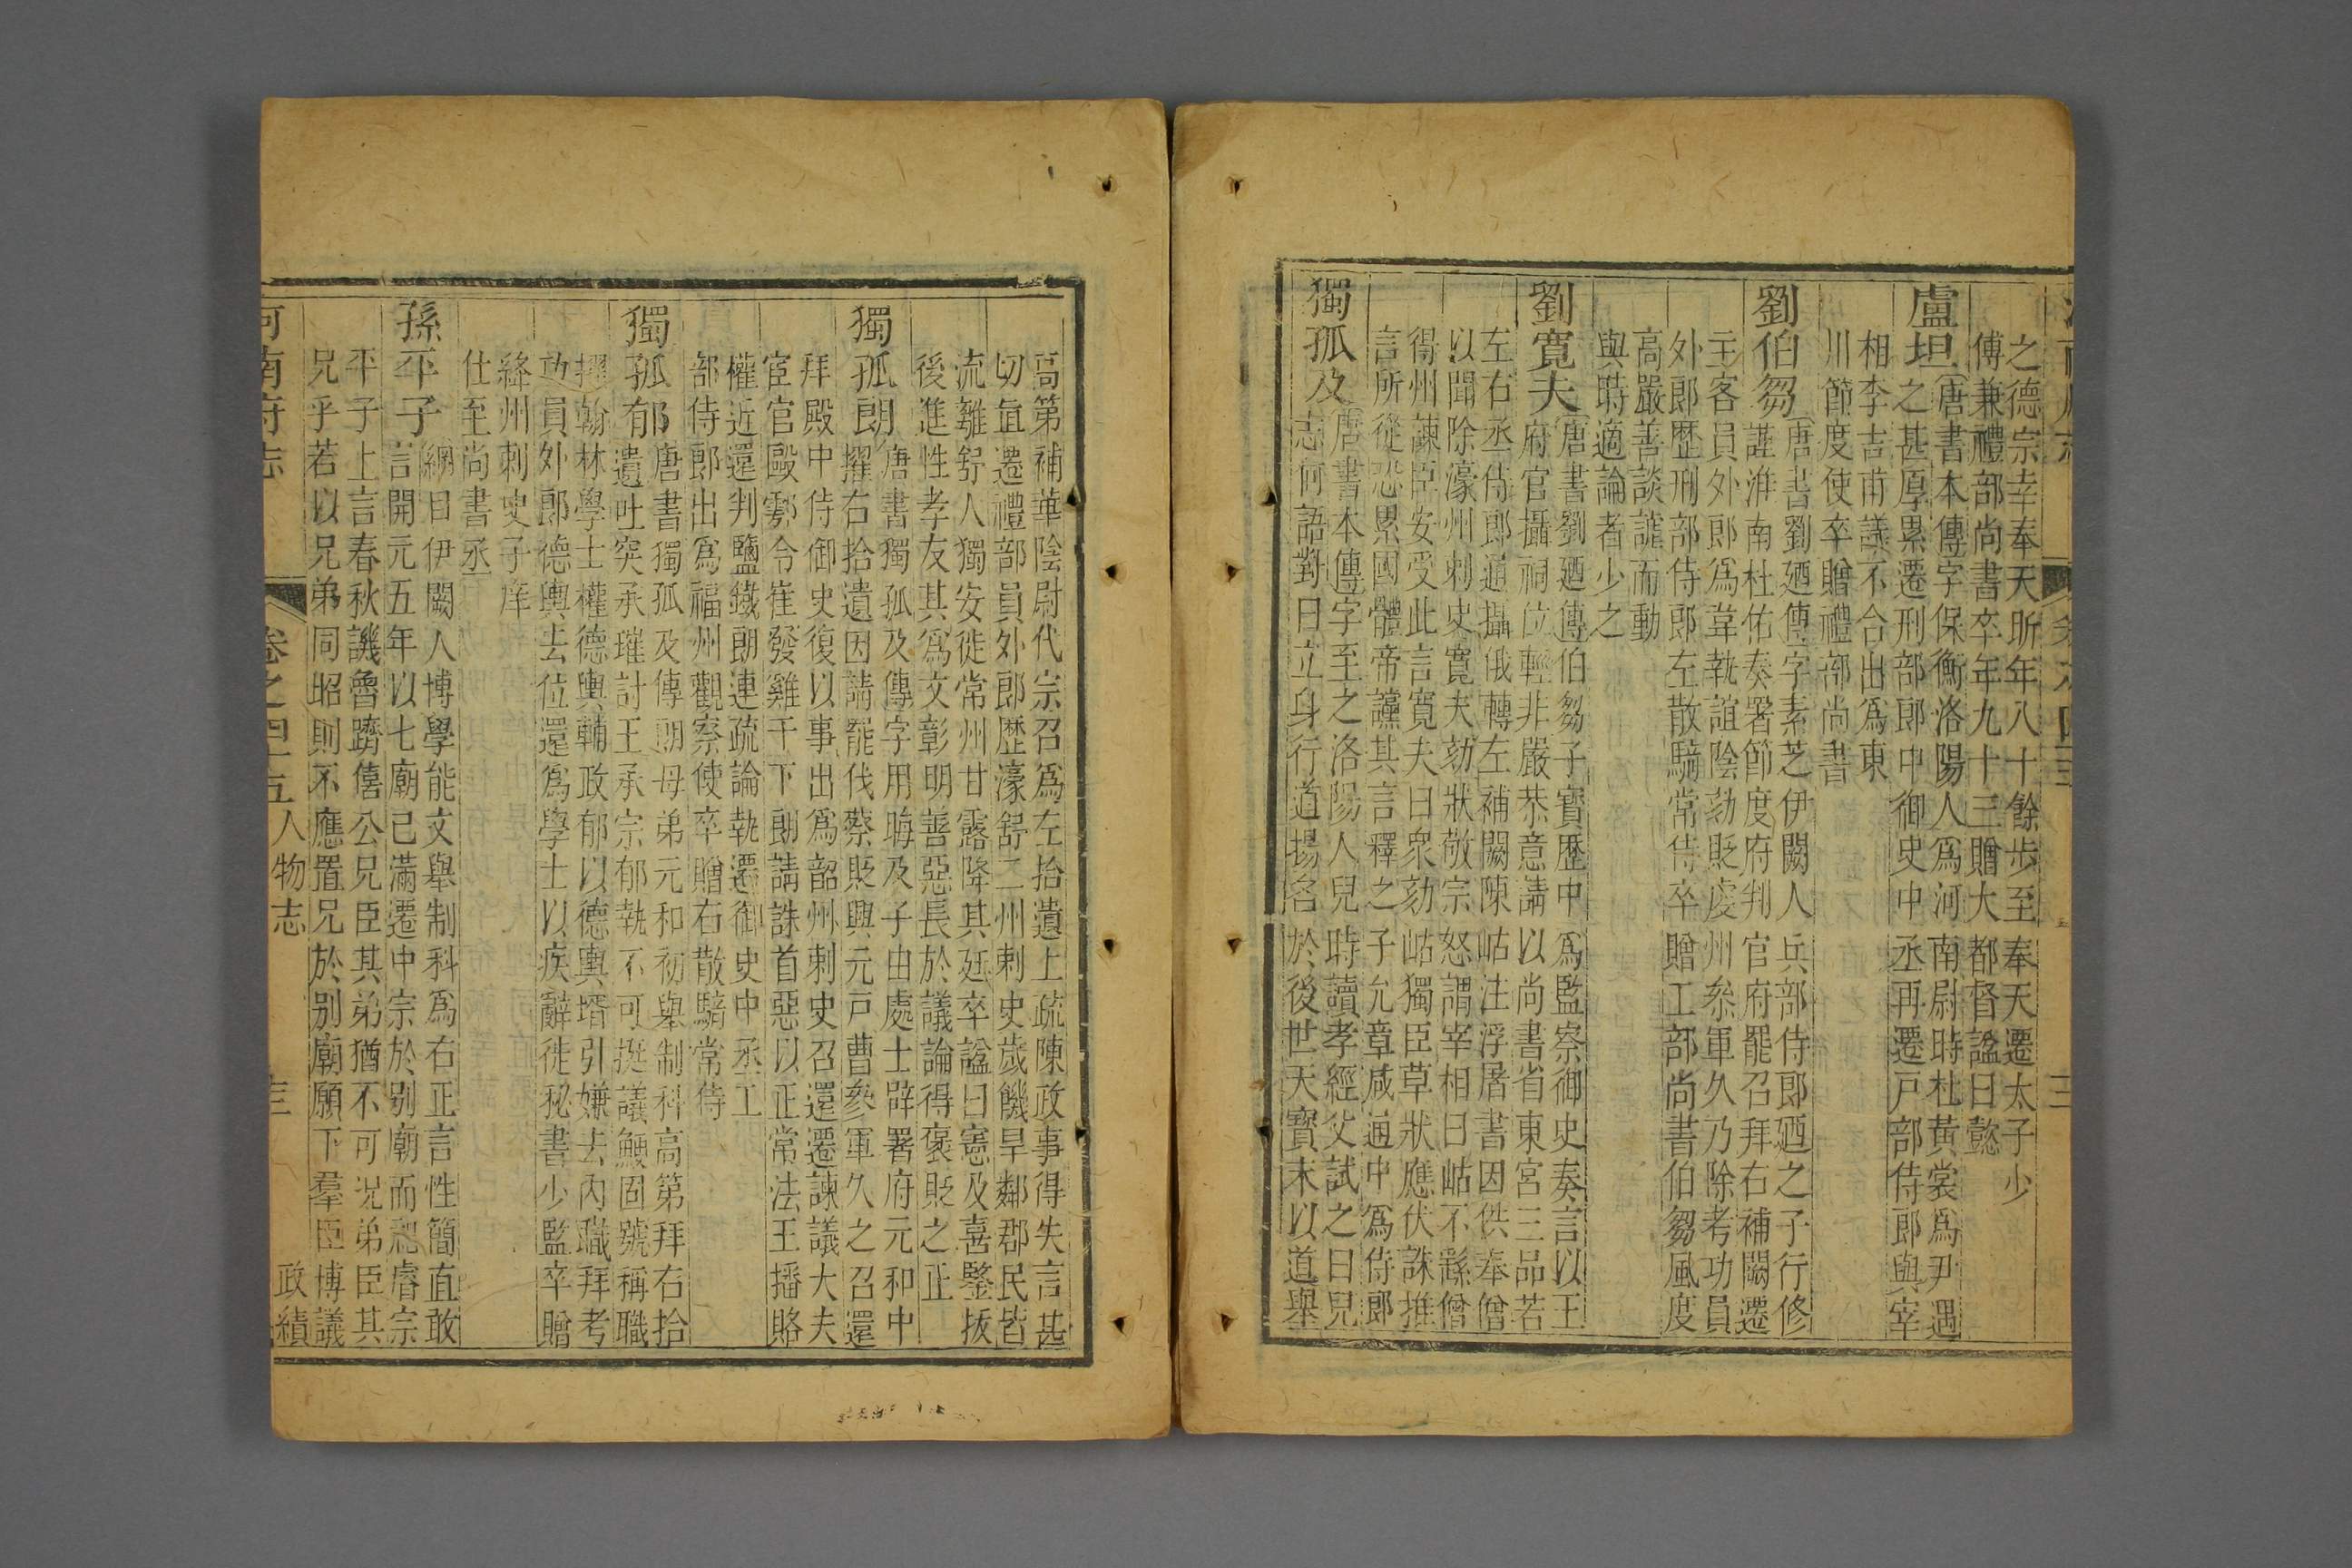 之德宗幸奉天昕年八十餘步至奉天遷太子少
傅兼禮部尚書卒年九十三贈大都督諡曰懿
盧坦唐書本傳字保衡洛陽人為河南尉時杜黃裳為尹遇
之甚厚累遷刑部郎中御史中丞再遷戸部侍郎與宰
相李吉甫議不合出為東
川節度使卒贈禮部尚書
劉伯芻唐書劉廼傳字素芝伊闕人兵部侍郎廼之子行修
謹淮南杜佑奏署節度府判官府罷召拜右補闕遷
主客員外郎為韋執誼陰劾貶虔州叅軍久乃除考功員
外郎歷刑部侍郎左散騎常侍卒贈工部尚書伯芻風度
高嚴善談謔而動
與時適論者少之
劉寬夫唐書劉廼傳伯芻子寶歷中為監察御史奏言以王
府官攝祠位輕非嚴恭意請以尚書省東宮三品若
左右丞侍郎通攝俄轉左補闕陳岵注浮屠書因供奉僧
以聞除濠州刺史寬夫劾狀敬宗怒謂宰相曰岵不繇僧
得州諫臣安受此言寬夫曰衆劾岵獨臣草狀應伏誅推
言所從恐累國體帝讜其言釋之子允章咸通中為侍郎
獨孤及唐書本傳字至之洛陽人兒時讀孝經父試之曰兒
志何語對曰立身行道揚名於後世天寶末以道舉
高第補華陰尉代宗召爲左拾遺上疏陳政事得失言甚
切直遷禮部員外郎歷濠舒二州刺史歲饑旱鄰郡民皆
流離舒人獨安徙常州甘露降其廷卒諡曰憲及喜鑒拔
後進性孝友其爲文彰明善惡長於議論得褒貶之正
獨孤朗唐書獨孤及傳字用晦及子由處士辟署府元和中
擢右拾遺因請罷伐蔡貶興元戸曹叅軍久之召還
拜殿中侍御史復以事出爲韶州刺史召還遷諫議大夫
宦官毆鄠令崔發雞干下朗請誅首惡以正常法王播賂
權近還判鹽鐵朗連疏論執遷御史中丞工
部侍郎出爲福州觀察使卒贈右散騎常侍
獨孤郁唐書獨孤及傳朗母弟元和初舉制科高第拜右拾
遺吐突承璀討王承宗郁執不可挺議鯁固號稱職
擢翰林學士權德輿輔政郁以德輿壻引嫌去內職拜考
功員外郎德輿去位還爲學士以疾辭徙秘書少監卒贈
絳州刺史子庠
仕至尚書丞
孫平子綱目伊闕人博學能文舉制科爲右正言性簡直敢
言開元五年以七廟已滿遷中宗於别廟而祀睿宗
平子上言春秋譏魯躋僖公兄臣其弟猶不可况弟臣其
兄乎若以兄弟同昭則不應置兄於别廟願下羣臣博議
河南府志 卷之四十五人物志 三 政績